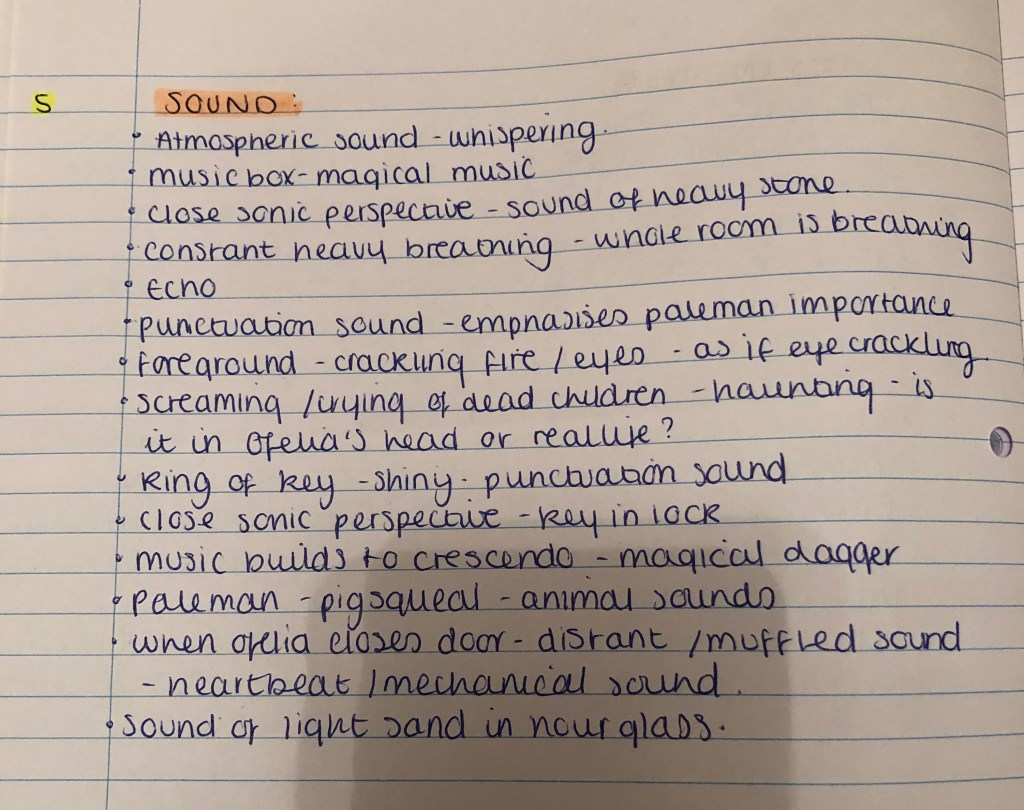 S SOUND:
• Atmospheric sound - whispering.
• music box - magical music
• close sonic perspective - sound of heavy stone.
• constant heavy breathing - whole room is breathing
• Echo
• punctuation sound - emphasises paleman importance
• foreground - crackling fire / eyes - as if eye crackling
• screaming / crying of dead children - haunting - is
it in Ofelia's head or real life?
• Ring of key - shiny - punctuation sound
• close sonic perspective - key in lock
• music builds to crescendo - magical dagger
• paleman - pig squeal - animal sounds
• when ofelia closes door - distant / muffled sound
- heartbeat / mechanical sound.
• sound of light sand in hourglass.